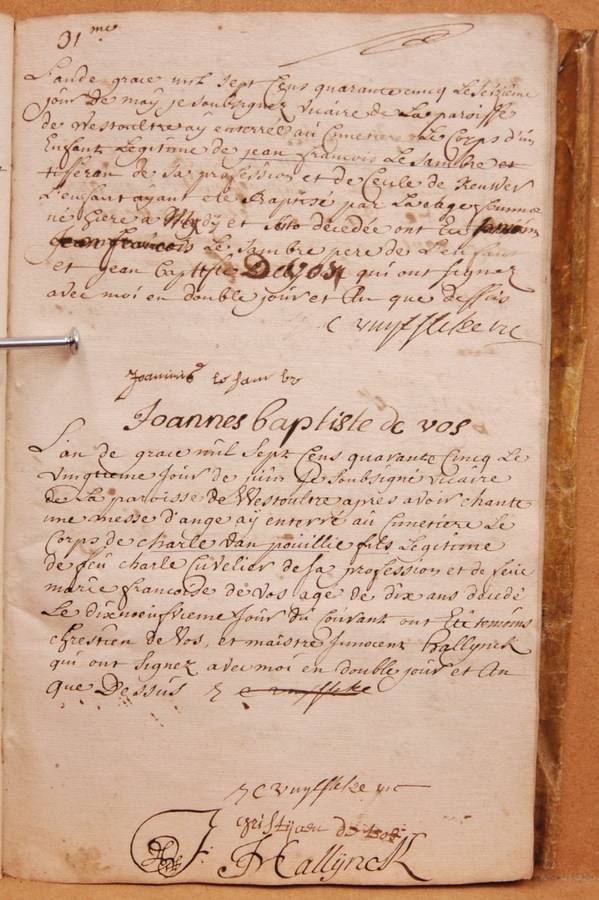 31 me
L'an de grace mil sept Cens quarante cincq Le seizieme
jour De may je soubsignez vicaire de La paroisse
de Westoultre aÿ enterré au Cimetiere Le Corps d'un
Enfant Legitime de jean francois Le Sambre et
tisseran de sa profession et de Cecile de
L'enfant ayant ete Baptisé par La sage femme
hiere a Mydÿ et decedée ont Eté temoins
jean francois Le Sambre pere de L'enfant
et jean baptiste qui ont signez
avec moi en double jour et An que dessus
C vuylsteke vic
joannis le sam br
Joannes baptiste de vos
L'an de grace mil Sept Cens quarante Cincq Le
vingtieme Jour de juin je soubsigné vicaire
de La paroisse de Westoultre apres avoir chanté
une messe d'ange aÿ enterré au Cimetiere Le
Corps de charle Van pouillie fils Legitime
de feu charle Cuvelier de sa profession et de feüe
marie francoise de vos age de dix ans decedé
Le dixneufvieme Jour du Courant ont Eté temoins
chrestien de Vos, et maistre Innocent hallynck
qui ont signez avec moi en double jour et An
que Dessus C vuylsteke
C vuylsteke vic
cristiaen de vos
J: Hallynck